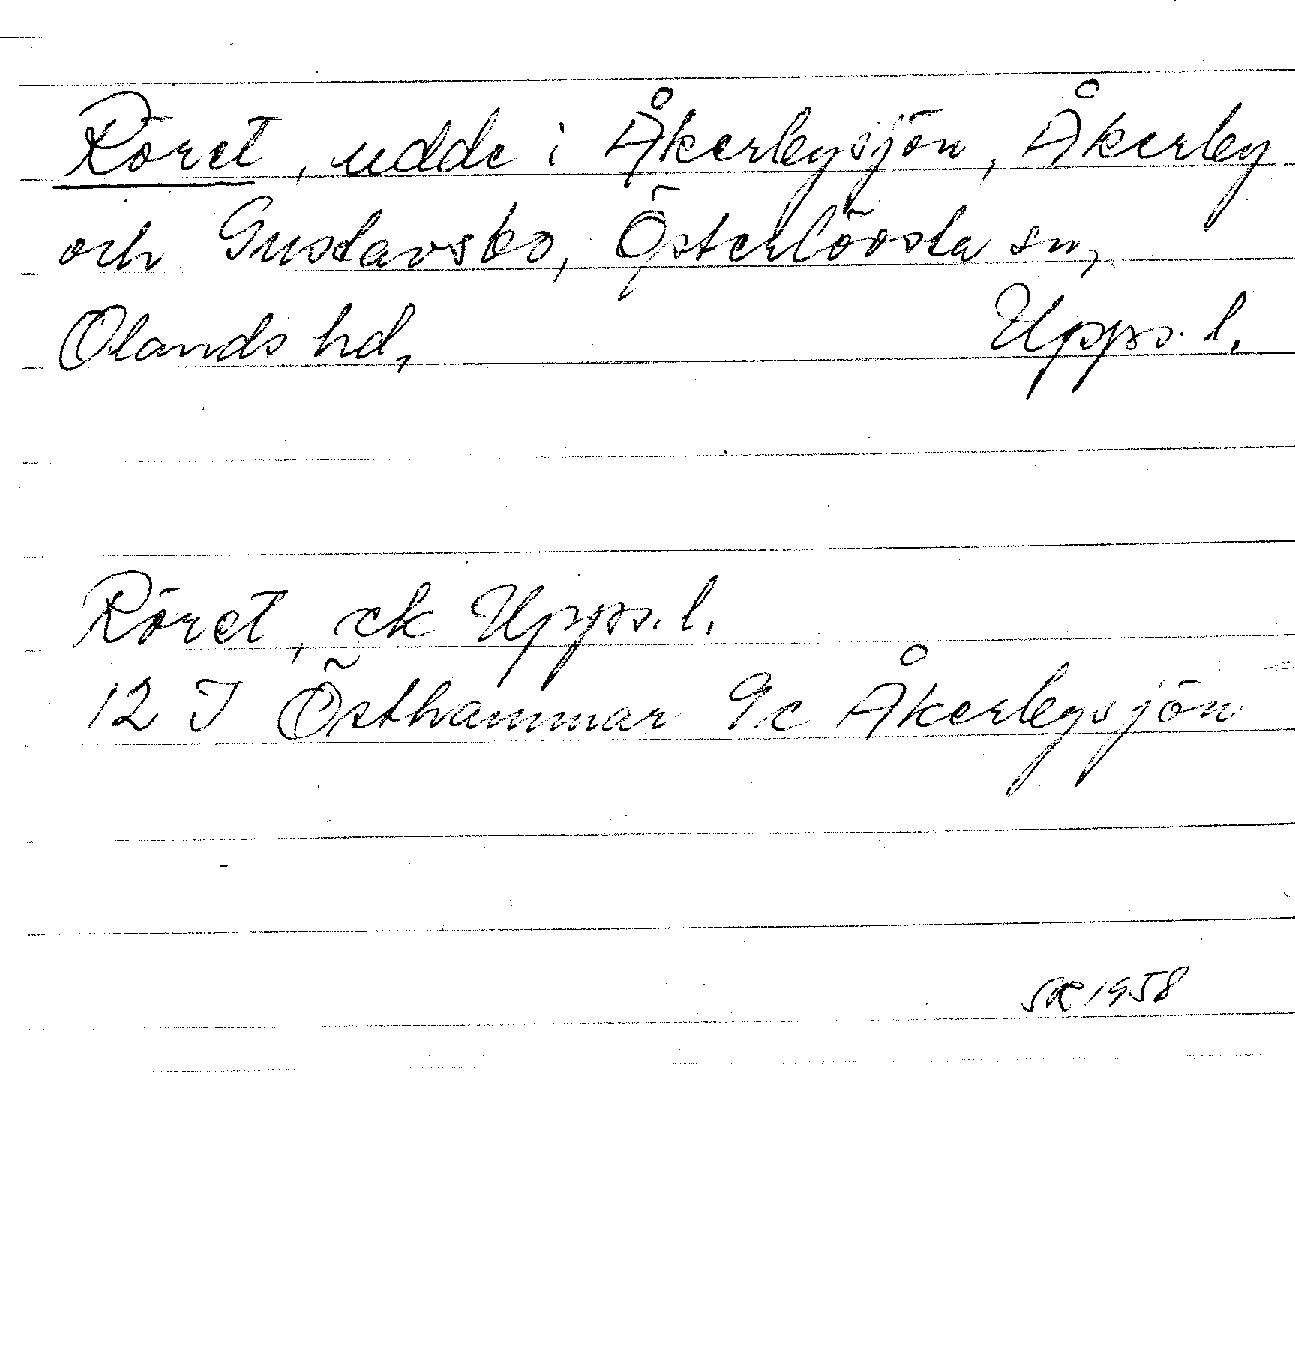 Röret, udde i Åkerbysjön, Åkerby
och Gustavsbo, Österlövsta sn,
Olands hd, Upps. l.
Röret, ek Upps. l.
12 I Östhammar 9c Åkerbysjön
SR 1958